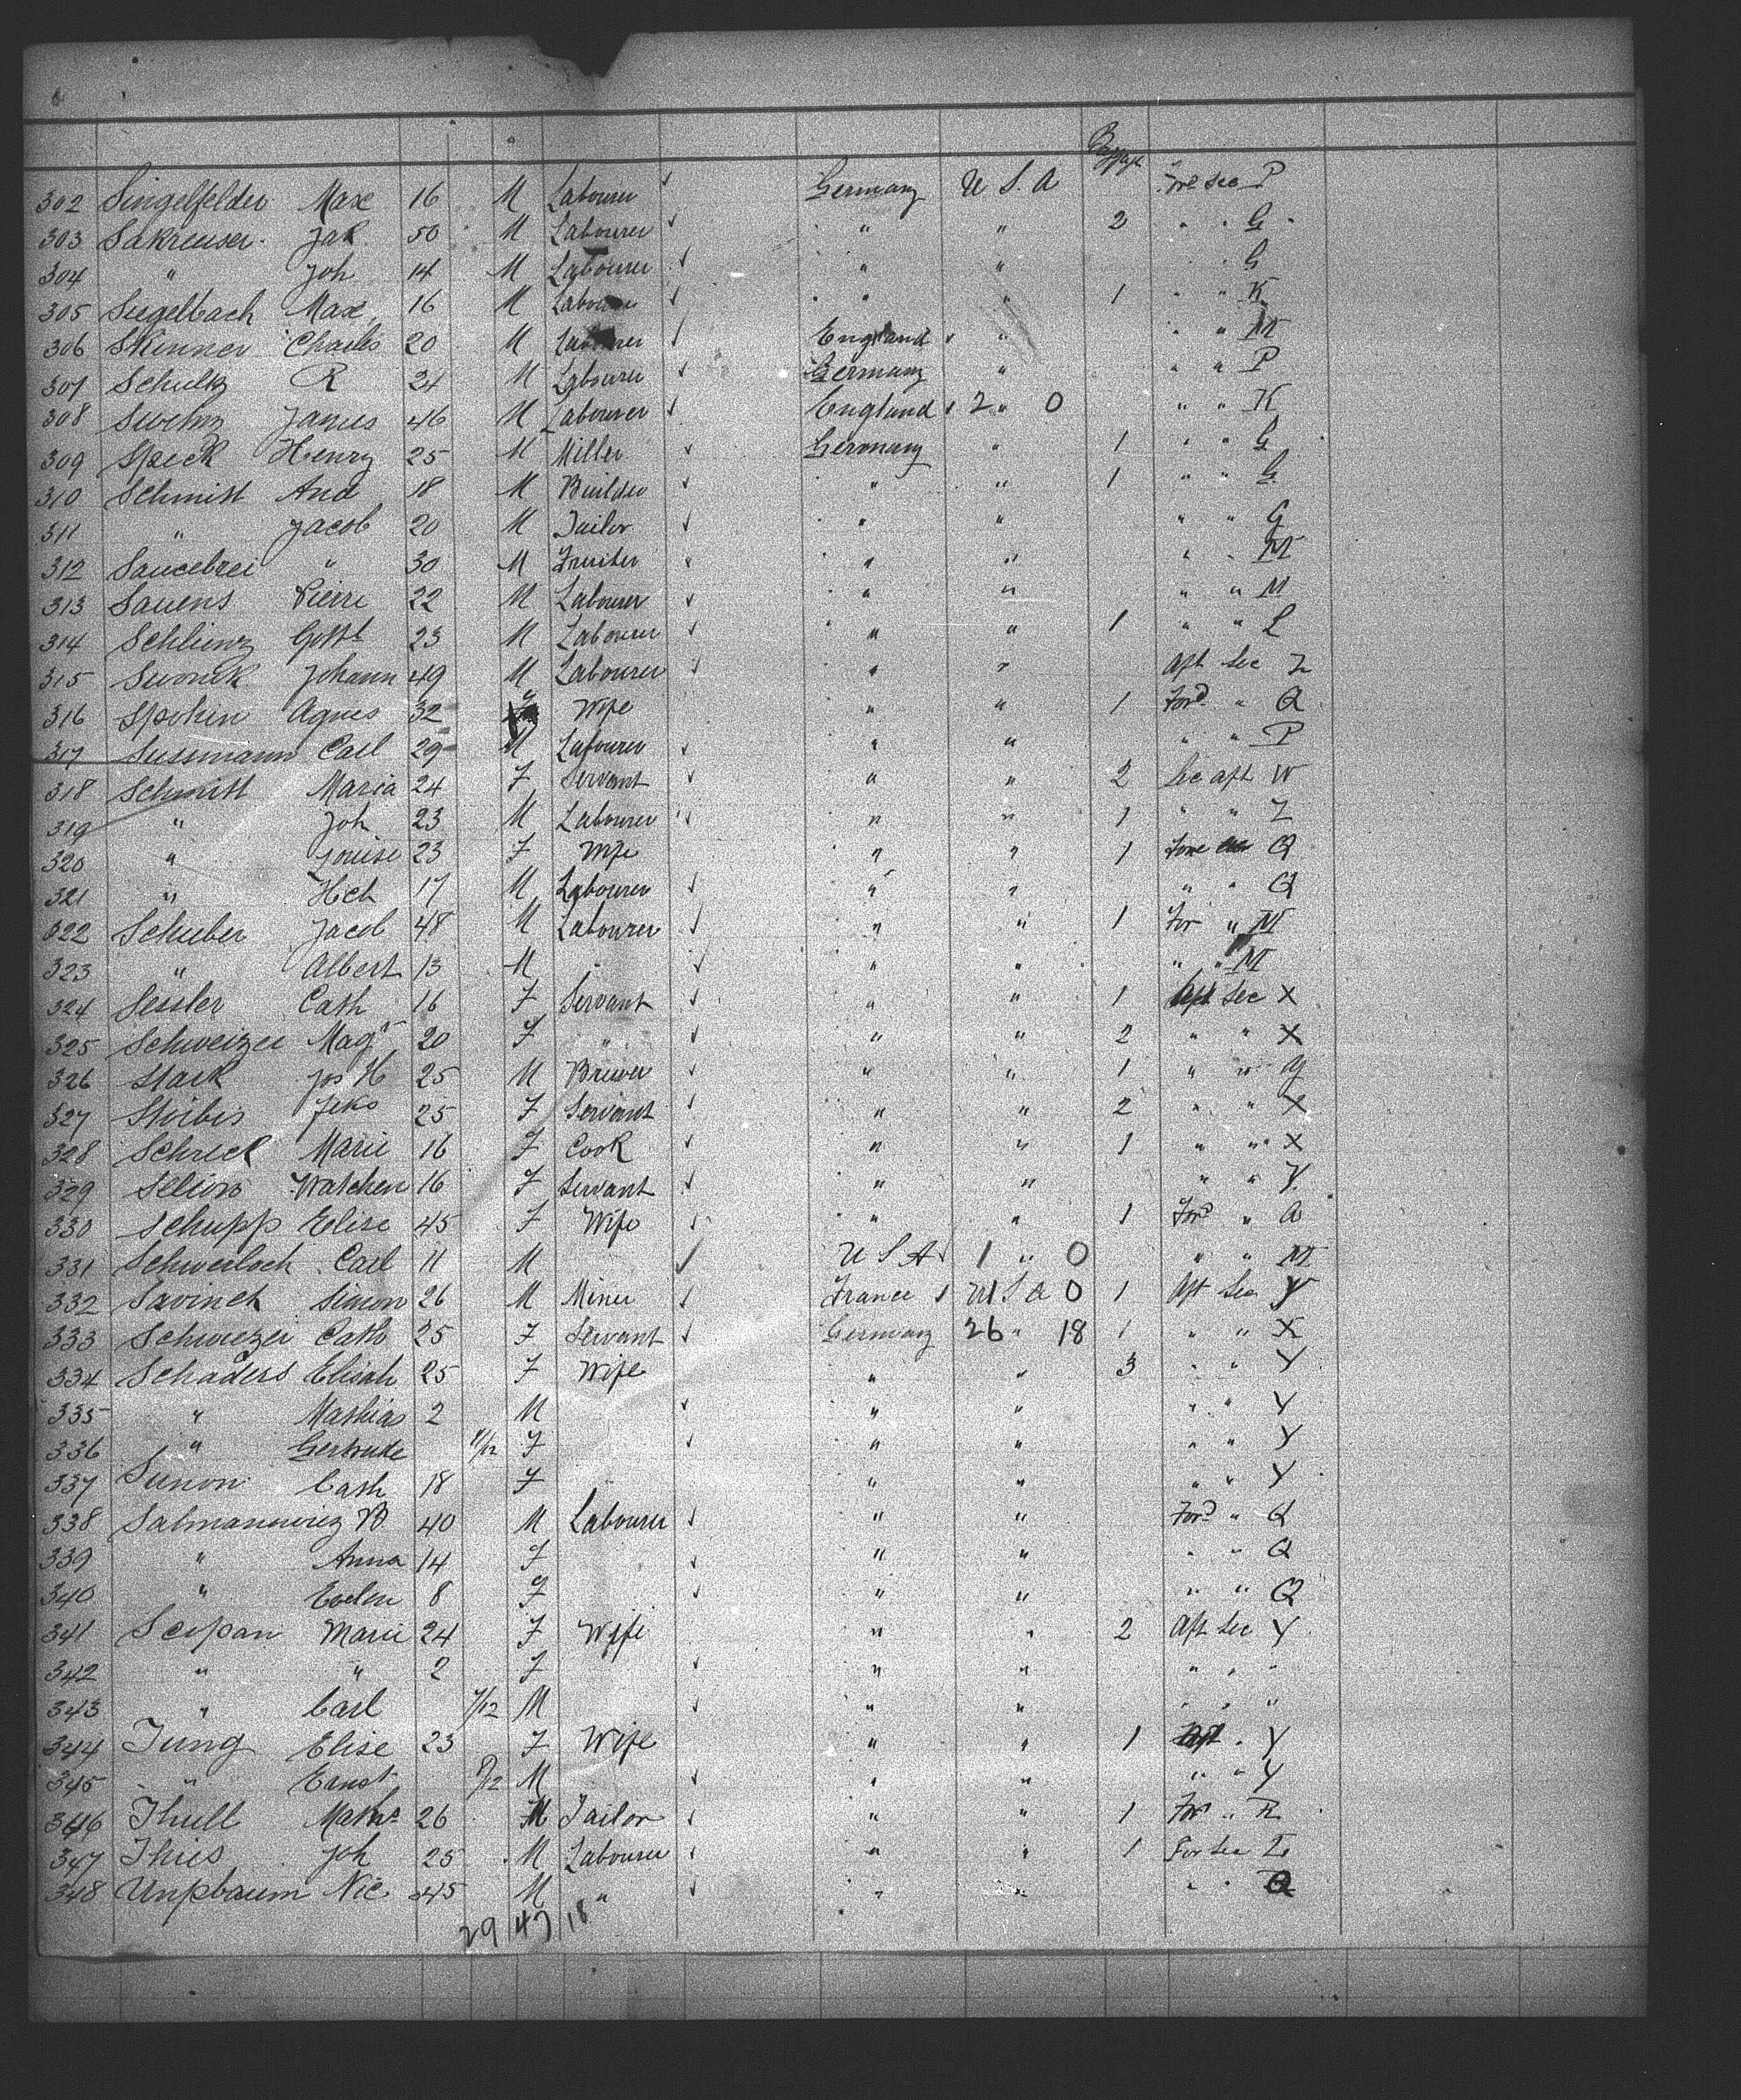 Baggage
302 Singelfelder Max 16 M Labourer Germany U.S.A Fore Sec P
303 Sakreuser Jak 50 M Labourer " " 2 " " G
304 " Joh 14 M Labourer " " " " G
305 Siegelbach Max 16 M Labourer " " 1 " " K
306 Skinner Charles 20 M Labourer England " " " M
307 Schultz R 24 M Labourer Germany " " " P
308 James 46 M Labourer England 2 " 0 " " K
309 Speck Henry 25 M Miller Germany " 1 " " G
310 Schmitt And 18 M Builder " " 1 " " G
311 " Jacob 20 M Tailor " " " " G
312 Saucebrei " 30 M Fruiter " " " " M
313 Sauens Pierre 22 M Labourer " " " " M
314 Schlienz Gottl 23 M Labourer " " 1 " " L
315 Swonek Johann 49 M Labourer " " Aft Sec Z
316 Agnes 32 Wife " " 1 Ford " Q
317 Sussmann Carl 29 M Labourer " " " " P
318 Schmitt Maria 24 F Servant " " 2 Sec aft W
319 " Joh 23 M Labourer " " 1 " " Z
320 " Louise 23 F Wife " " 1 Fore Q
321 " Hch 17 M Labourer " " " " Q
322 Schuber Jacob 48 M Labourer " " 1 For " M
323 " Albert 13 M " " " " M
324 Sessler Cath 16 F Servant " " 1 Aft Sec X
325 Schweizer Mag 20 F " " " 2 " " X
326 Stark Jos H 25 M Brewer " " 1 " " Y
327 Stoibis 25 F Servant " " 2 " " X
328 Schreck Marie 16 F Cook " " 1 " " X
329 Watchen 16 F Servant " " " " Y
330 Schupp Elise 45 F Wife " " 1 Ford " Q
331 Schwerloch Carl 11 M U S A 1 " 0 " " M
332 Savinch Simon 26 M Miner France U S A 0 1 Aft Sec Y
333 Schweizer Cath 25 F Servant Germany 26 " 18 1 " " X
334 Schaders Elisah 25 F Wife " " 3 " " Y
335 " Mathias 2 M " " " " Y
336 " Gertrude 11/12 F " " " " Y
337 Simon Cath 18 F " " " " Y
338 Salmanowiez B 40 M Labourer " " Ford " Q
339 " Anna 14 F " " " " Q
340 " Evelin 8 F " " " " Q
341 Scipan Marie 24 F Wife " " 2 Aft Sec Y
342 " " 2 F " " " " "
343 " Carl 7/12 M " " " " "
344 Jung Elise 23 F Wife " " 1 Aft " Y
345 " Ernst 9/12 M " " " " Y
346 Thull Maths 26 M Tailor " " 1 For " R
347 Thies Joh 25 M Labourer " " 1 For Sec
348 Unpbaum Nic 45 M " " " " " Q
29 47 18